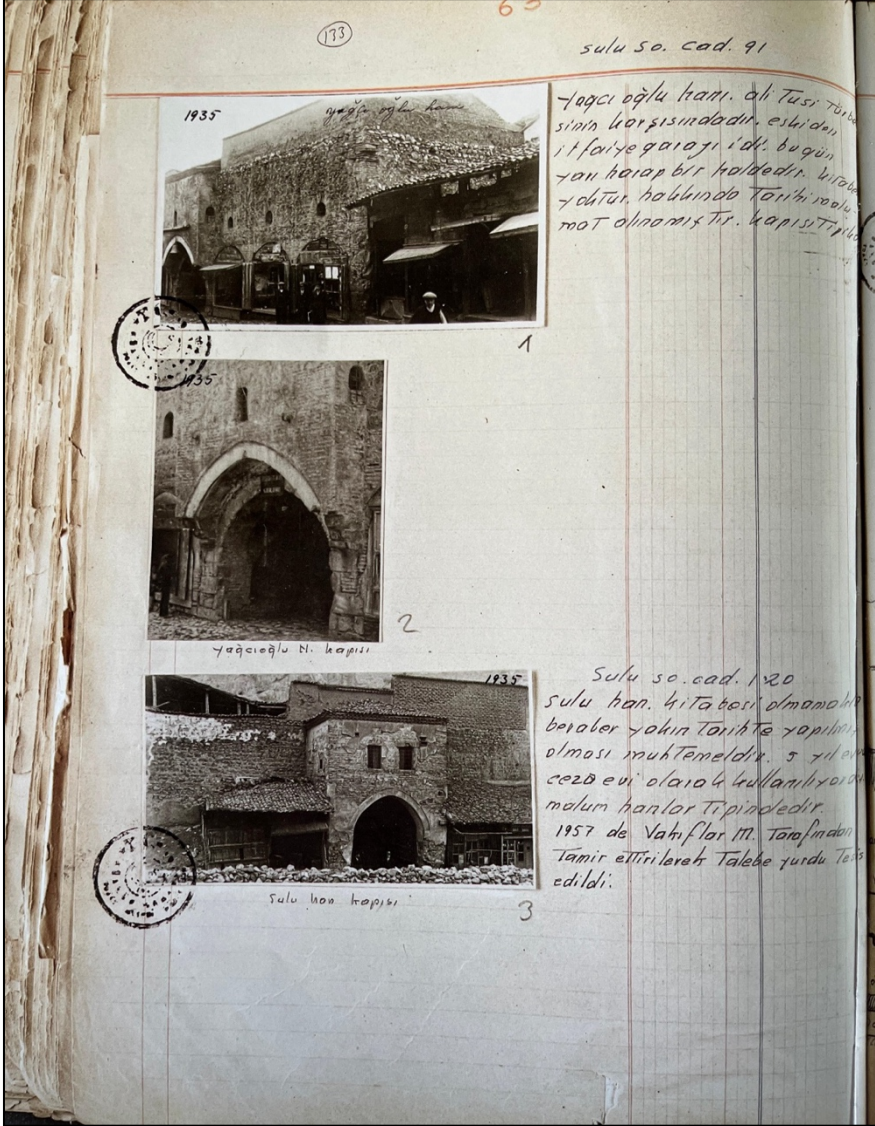 133
sulu so. cad. 91
1935
yağcı oğlu hanı
yağcı oğlu hanı. ali Tusi Türbe
sinin karşısındadır. eskiden
itfaiye garajı idi. bugün
yarı harap bir haldedir. kitabe
yoktur. hakkında Tarihi malu-
mat alınamıştır. kapısı
1
1935
2
yağcıoğlu H. kapısı
1935
Sulu so. cad. 120
sulu han. kitabesi olmamakla
beraber yakın Tarihte yapılmış
olması muhtemeldir. 5 yıl
ceza evi olarak kullanılıyordu
malum hanlar Tipindedir.
1957 de Vakıflar M. Tarafından
Tamir ettirilerek Talebe yurdu
edildi.
sulu han kapısı
3